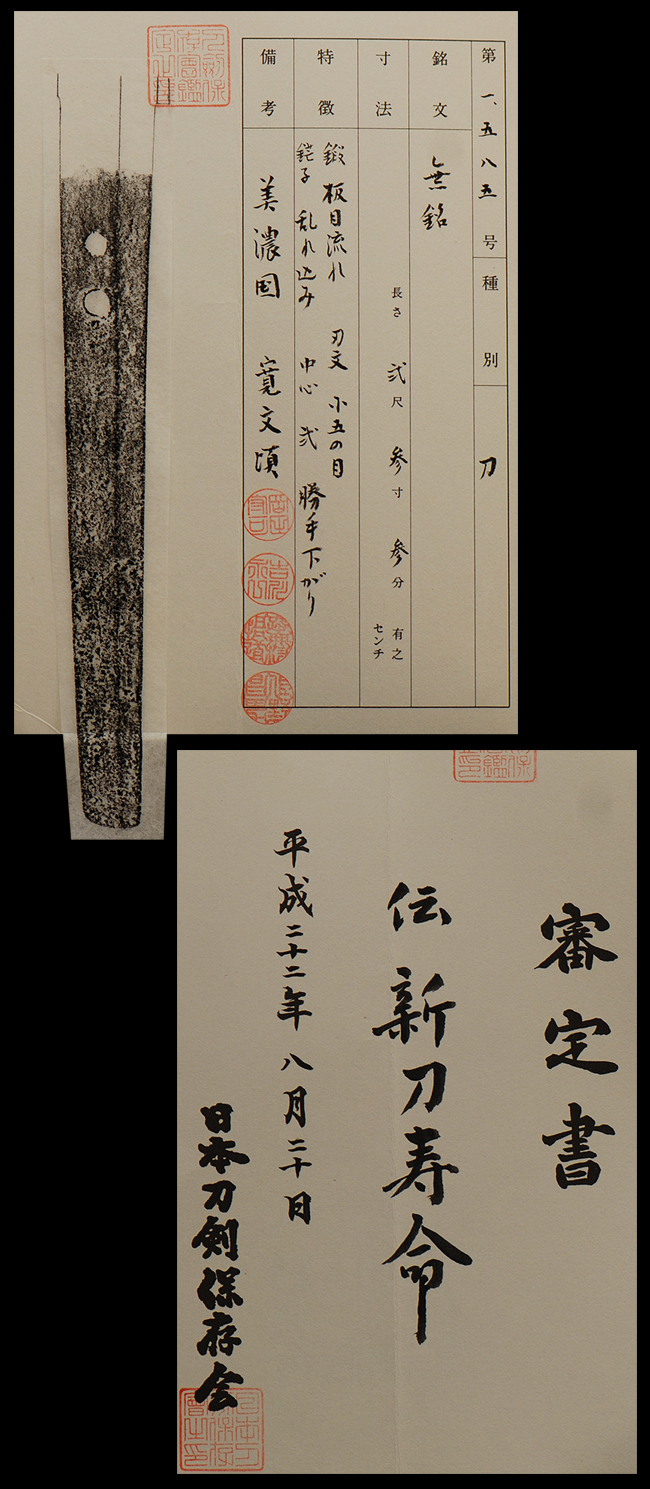 第一、五八五号
種別 刀
銘文 無銘
寸法 長さ 弐尺 参寸 参分 有之
センチ
特徴 鍛 板目流れ 刃文 小五の目
鋩子 乱れ込み 中心 弐 勝手下がり
備考 美濃国 寛文頃
審定書
伝 新刀寿命
平成二十二年八月二十日
日本刀剣保存会